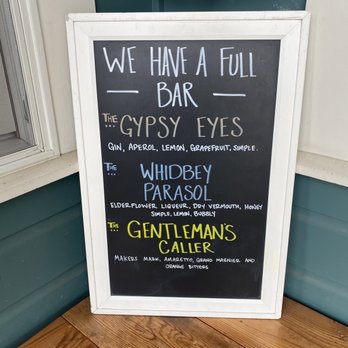 WE HAVE A FULL
— BAR —
THE GYPSY EYES
GIN, APEROL, LEMON, GRAPEFRUIT, SIMPLE.
THE WHIDBEY
PARASOL
ELDERFLOWER LIQUEUR, DRY VERMOUTH, HONEY
SIMPLE, LEMON, BUBBLY
THE GENTLEMAN'S
CALLER
MAKERS MARK, AMARETTO, GRAND MARNIER AND
ORANGE BITTERS